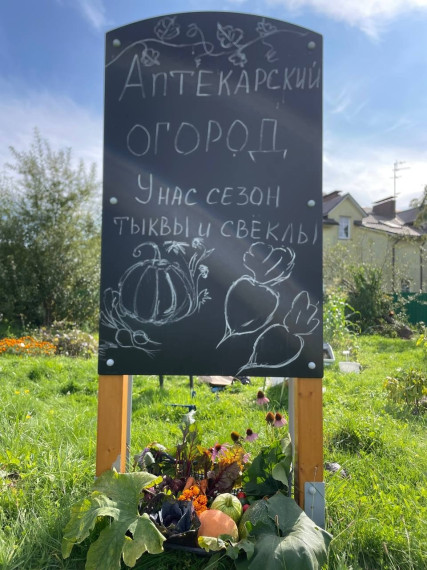 Аптекарский
огород
У нас сезон
тыквы и свёклы